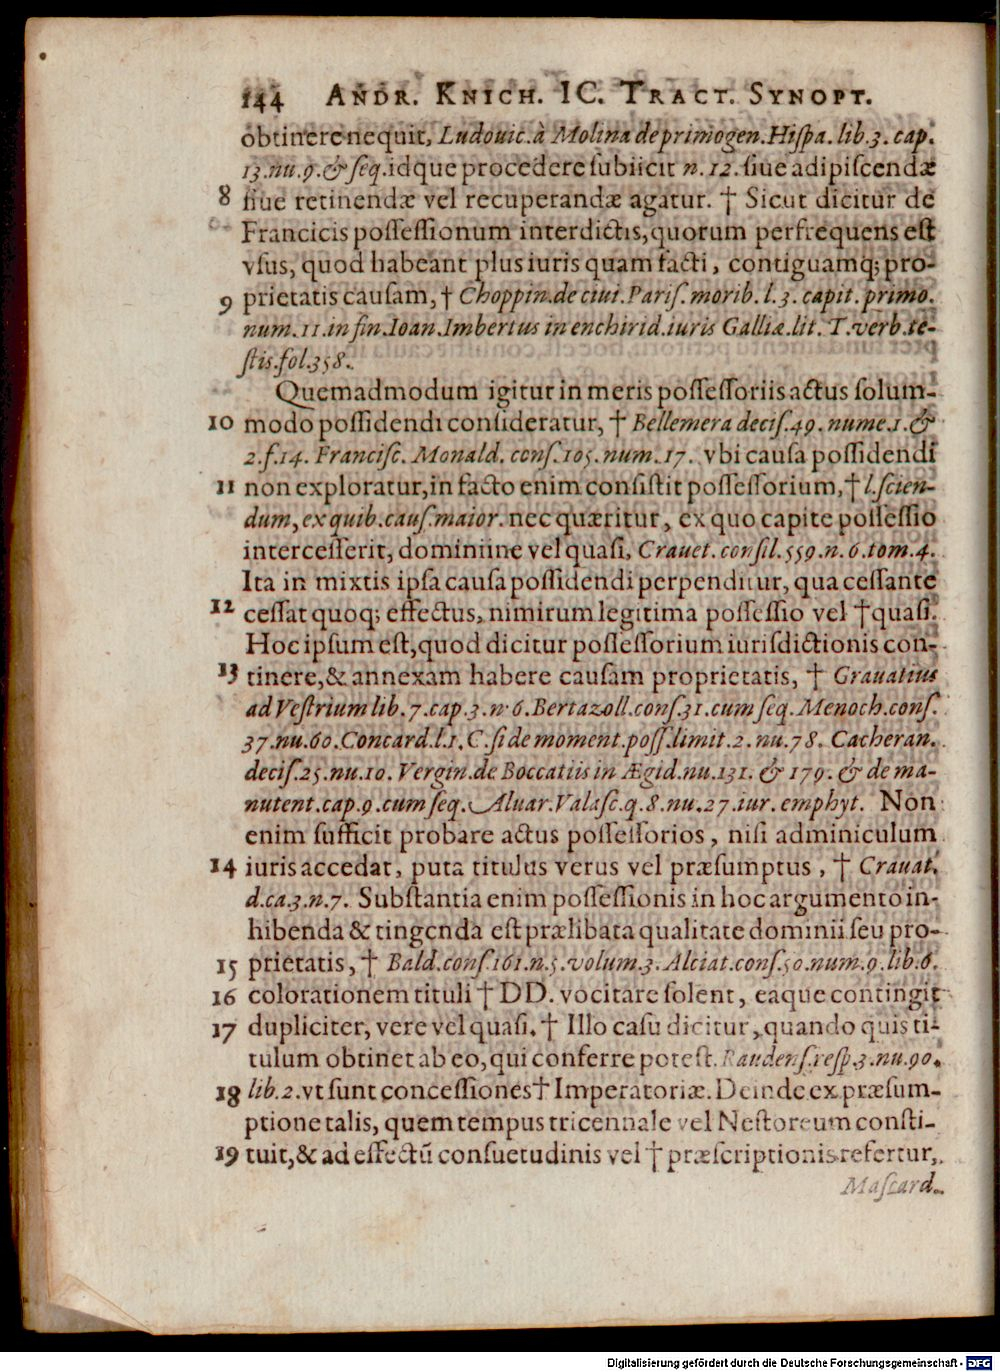 144 ANDR. KNICH. IC. TRACT. SYNOPT.
obtinere nequit, Ludouic. à Molina de primogen. Hiſpa. lib. 3. cap.
13. nu. 9. & ſeq. idque procedere ſubiicit n. 12. ſiue adipiſcendæ
8 ſiue retinendæ vel recuperandæ agatur. † Sicut dicitur de
Francicis poſſeſſionum interdictis, quorum perfrequens eſt
vſus, quod habeant plus iuris quam facti, contiguamq; pro-
9 prietatis cauſam, † Choppin. de ciui. Pariſ. morib. l. 3. capit. primo.
num. 11. in fin. Ioan. Imbertus in enchirid. iuris Galliæ. lit. T. verb. te-
ſtis. fol. 358.
Quemadmodum igitur in meris poſſeſſoriis actus ſolum-
10 modo poſſidendi conſideratur, † Bellemera deciſ. 49. nume. 1. &
2. f. 14. Franciſc. Monald. conſ. 105. num. 17. vbi cauſa poſſidendi
11 non exploratur, in facto enim conſiſtit poſſeſſorium, † l. ſcien-
dum, ex quib. cauſ. maior. nec quæritur, ex quo capite poſſeſſio
interceſſerit, dominiine vel quaſi, Crauet. conſil. 559. n. 6. tom. 4.
Ita in mixtis ipſa cauſa poſſidendi perpenditur, qua ceſſante
12 ceſſat quoq; effectus, nimirum legitima poſſeſſio vel † quaſi.
Hoc ipſum eſt, quod dicitur poſſeſſorium iurisdictionis con-
13 tinere, & annexam habere cauſam proprietatis, † Grauatius
ad Veſtrium lib. 7. cap. 3. n. 6. Bertazoll. conſ. 31. cum ſeq. Menoch. conſ.
37. nu. 60. Concard. l. 1. C. ſi de moment. poſſ. limit. 2. nu. 78. Cacheran.
deciſ. 25. nu. 10. Vergin. de Boccatiis in Ægid. nu. 131. & 179. & de ma-
nutent. cap. 9. cum ſeq. Aluar. Valaſc. q. 8. nu. 27. iur. emphyt. Non
enim ſufficit probare actus poſſeſſorios, niſi adminiculum
14 iuris accedat, puta titulus verus vel præſumptus, † Crauat.
d. ca. 3. n. 7. Subſtantia enim poſſeſſionis in hoc argumento in-
hibenda & tingenda eſt prælibata qualitate dominii ſeu pro-
15 prietatis, † Bald. conſ. 161. n. 5. volum. 3. Alciat. conſ. 50. num. 9. lib. 6.
16 colorationem tituli † DD. vocitare ſolent, eaque contingit
17 dupliciter, vere vel quaſi. † Illo caſu dicitur, quando quis ti-
tulum obtinet ab eo, qui conferre poteſt. Raudenſ. reſp. 3. nu. 90.
18 lib. 2. vt ſunt conceſſiones † Imperatoriæ. Deinde ex præſum-
ptione talis, quem tempus tricennale vel Neſtoreum conſti-
19 tuit, & ad effectũ conſuetudinis vel † præſcriptionis refertur,
Maſcard.
Digitalisierung gefördert durch die Deutsche Forschungsgemeinschaft - DFG